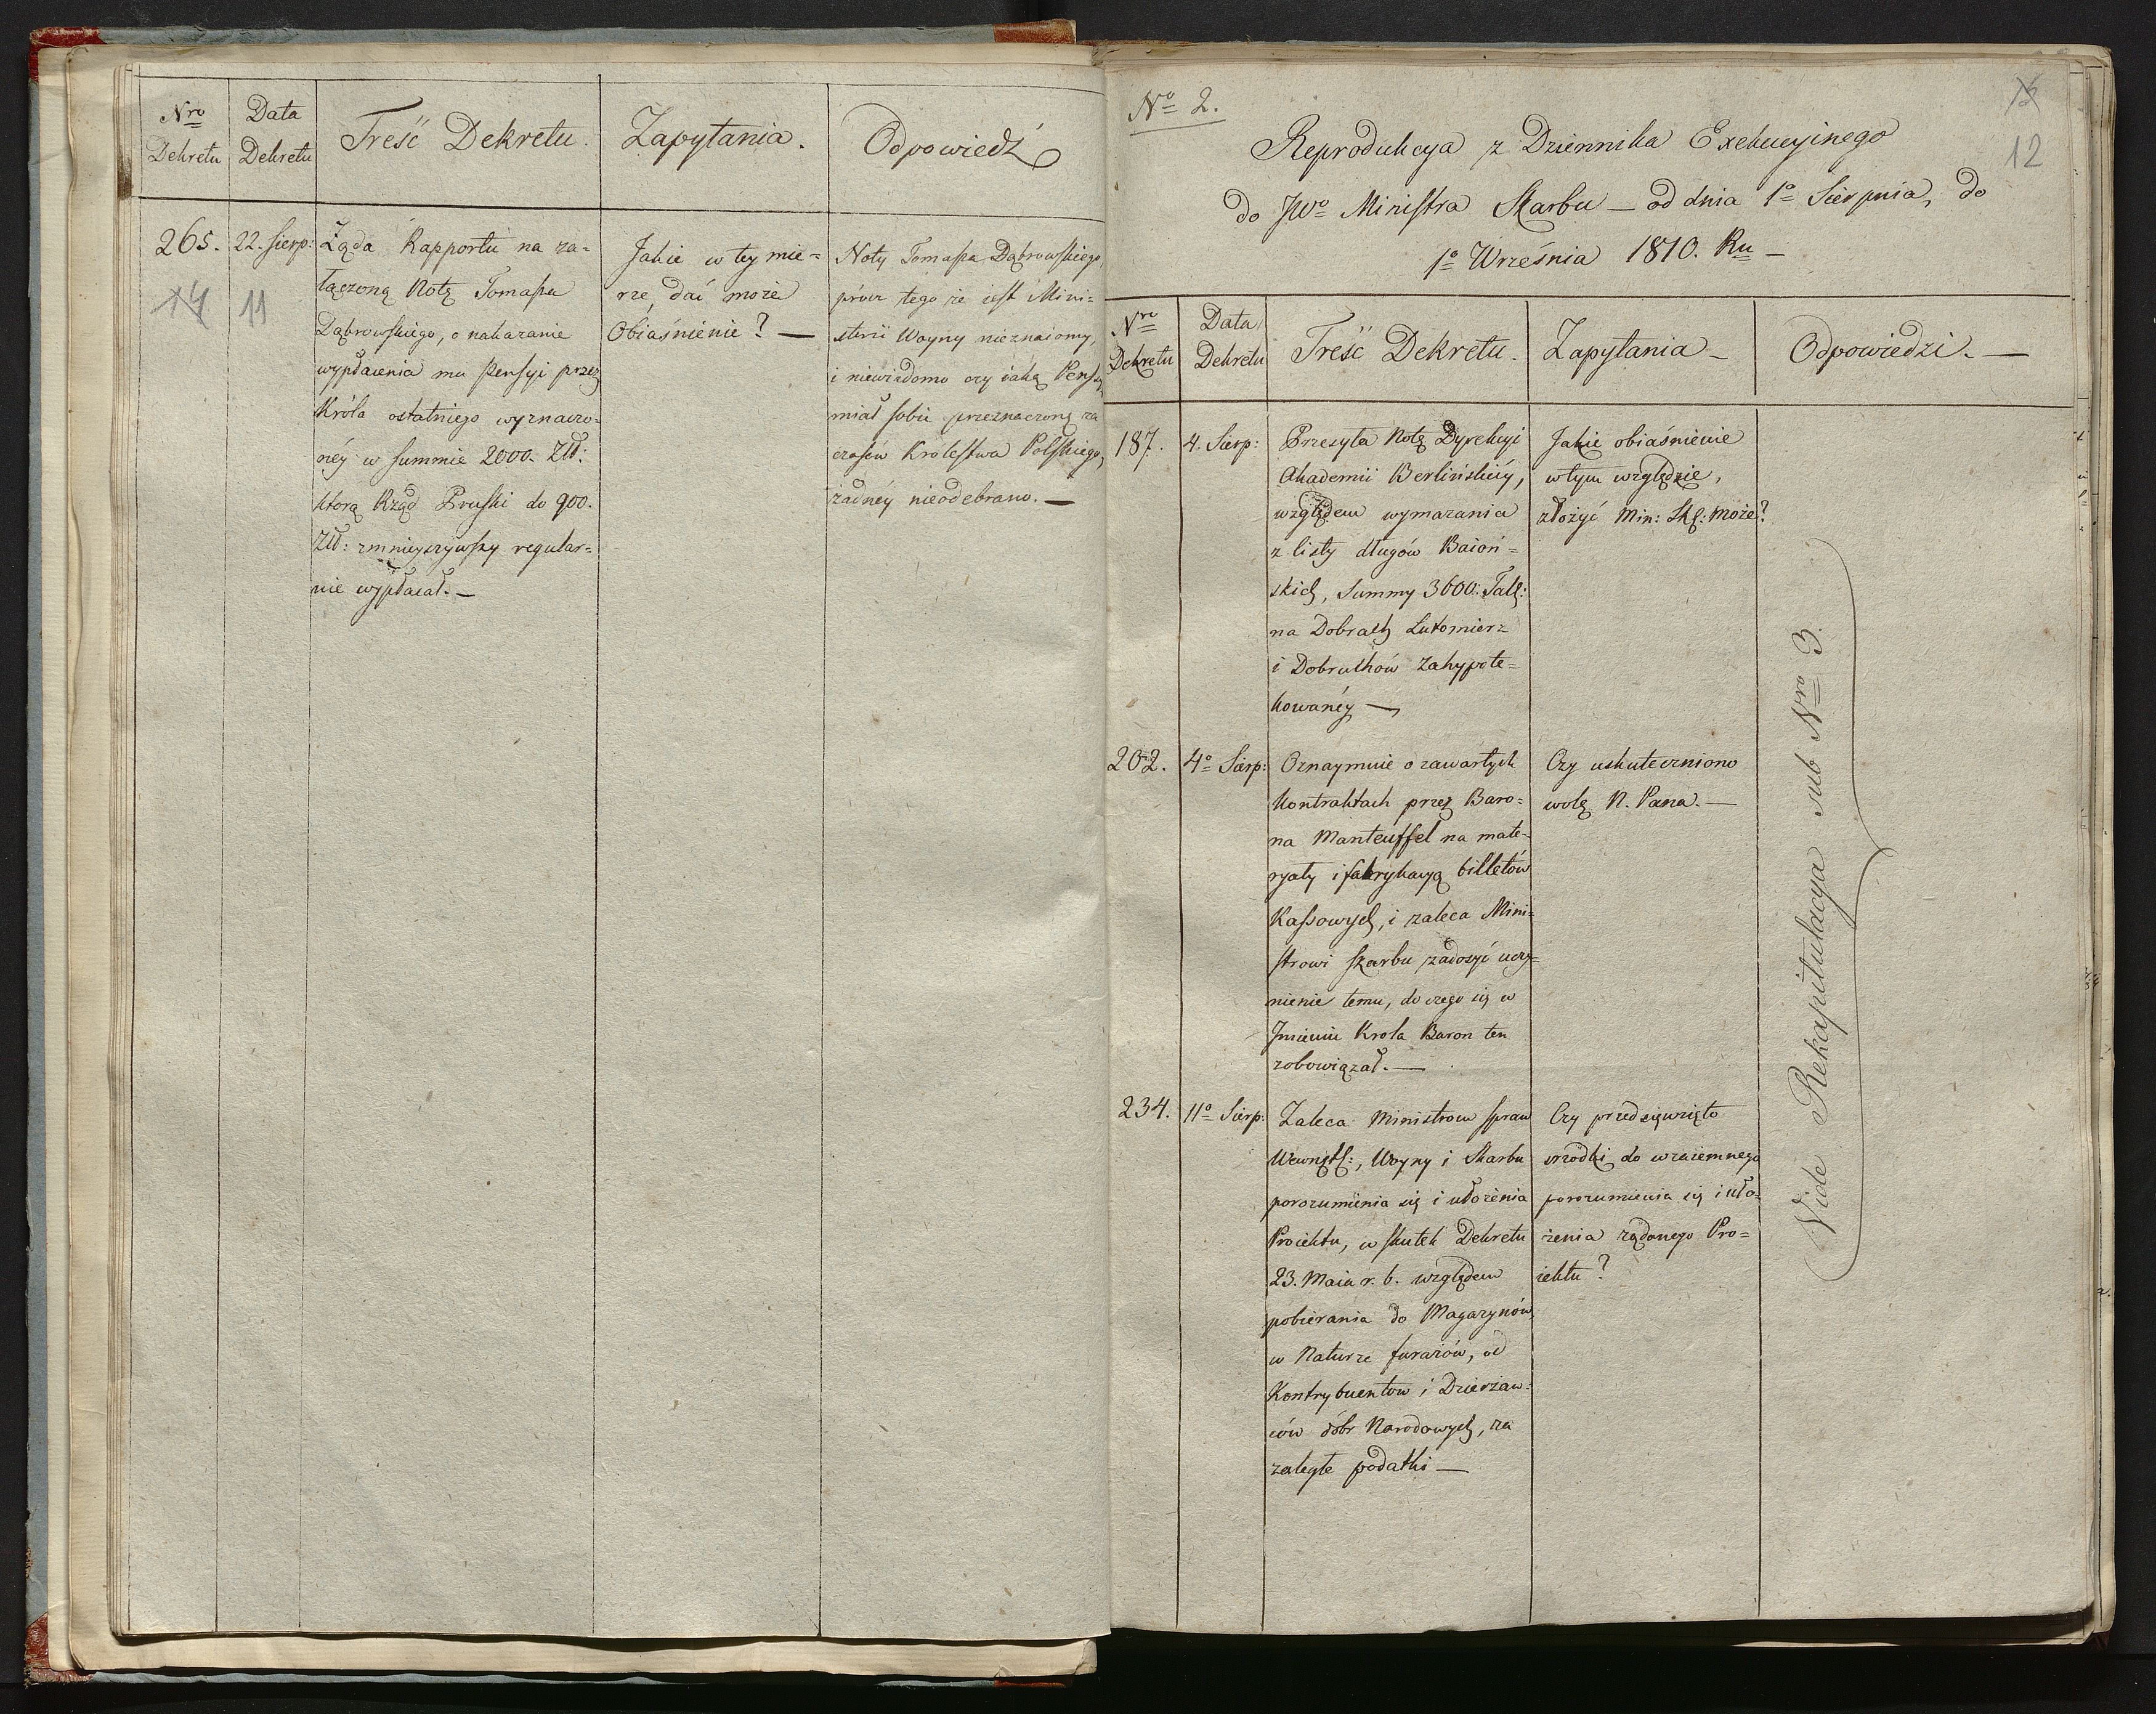 Nro Dekretu
Data Dekretu
Treść Dekretu.
Zapytania.
Odpowiedź
265.
22. Sierp:
Żąda Rapportu na za=
łączoną Notę Tomasza
Dąbrowskiego, o nakazanie
wypłacenia mu Pensyi przez
Króla ostatniego wyznaczo=
néy w summie 2000. Złł:
ktorą Rząd Pruski do 900.
Złł: zmnieyszywszy regular=
nie wypłacał. —
Jakie w tey mie=
rze dać może
Obiaśnienie? —
Noty Tomasza Dąbrowskiego,
prócz tego że iest Mini=
sterii Woyny nieznaiomy,
i niewiadomo czy iaką Pensyą
miał sobie przeznaczoną za
czasów Królestwa Polskiego,
żadnéy nieodebrano. —
14
11
No 2.
12
Reprodukcya z Dziennika Exekucyinego
do JWo Ministra Skarbu — od dnia 1o Sierpnia, do
1o Września 1810. Ru —
Nro Dekretu
Data Dekretu
Treść Dekretu.
Zapytania —
Odpowiedzi. —
187.
4. Sierp:
Przesyła Notę Dyrekcyi
Akademii Berlińskiéy,
względem wymazania
z listy długów Baioń=
skich, Summy 3600. Tall:
na Dobrach Lutomierz
i Dobrutków Zahypote=
kowanéy —
Jakie obiaśnienie
w tym względzie,
złożyć Min: Skb: może?
202.
4o Sierp:
Oznaymuie o zawartych
kontraktach przez Baro=
na Manteuffel na mate=
ryały i fabrykacyą billetów
Kassowych, i zaleca Mini=
strowi Skarbu zadosyć uczy=
nienie temu, do czego się w
Jmieniu Krola Baron ten
zobowiązał. —
Czy uskuteczniono
wolę N. Pana. —
234.
11o Sierp:
Zaleca Ministrom spraw
Wewnętr:, Woyny i Skarbu
porozumienia się i ułożenia
Proiektu, w skutek Dekretu
23. Maia r. b. względem
pobierania do Magazynów,
w Naturze furażów, od
Kontrybuentow i Dzierżaw=
ców dóbr Narodowych, za
zaległe podatki —
Czy przedsięwzięto
srzodki do wzaiemnego
porozumienia się i uło=
żenia żądanego Pro=
iektu?
Vide Rekapitulacya sub Nro 3.